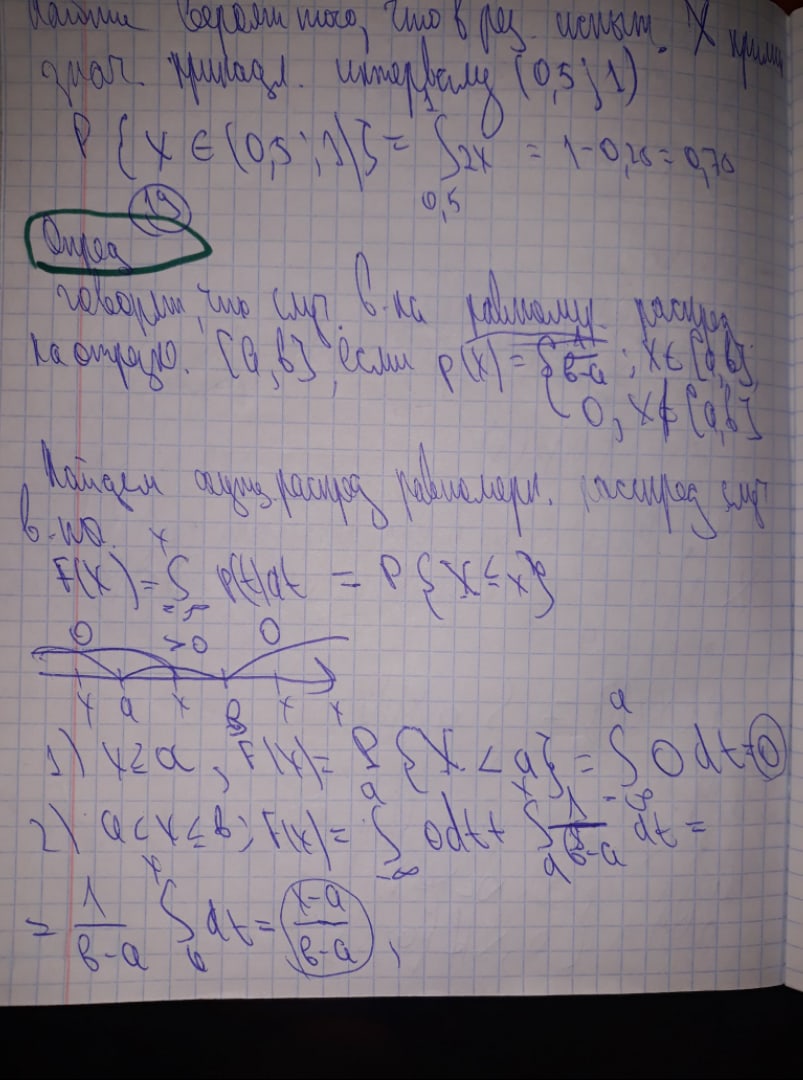 Найти вероятн того, что в рез. испыт. X прим
знач. принадл. интервалу (0,5; 1)
P{X ∈ (0,5; 1)} = ∫₀,₅¹ 2x = 1 - 0,25 = 0,75
19
Опред
Говорят, что случ. в-на равномер. распред
на отрезке. [a, b], если p(x) = { 1/(b-a); x ∈ [a, b]
0, x ∉ [a, b]
Найдем функц распред равномерн. распред случ
в-на.
F(x) = ∫₋∞ˣ p(t)dt = P{X ≤ x}
0 >0 0
x a x b x x
1) x ≥ a, F(x) = P{X < a} = ∫₋∞ᵃ 0 dt = 0
2) a < x ≤ b; F(x) = ∫₋∞ᵃ 0dt + ∫ₐˣ 1/(b-a) dt =
= 1/(b-a) ∫ˣ dt = (x-a)/(b-a),